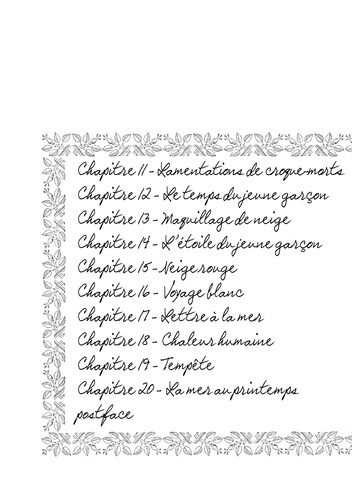 Chapitre 11 - Lamentations de croque-morts
Chapitre 12 - Le temps du jeune garçon
Chapitre 13 - Maquillage de neige
Chapitre 14 - L'étoile du jeune garçon
Chapitre 15 - Neige rouge
Chapitre 16 - Voyage blanc
Chapitre 17 - Lettre à la mer
Chapitre 18 - Chaleur humaine
Chapitre 19 - Tempête
Chapitre 20 - La mer au printemps
postface